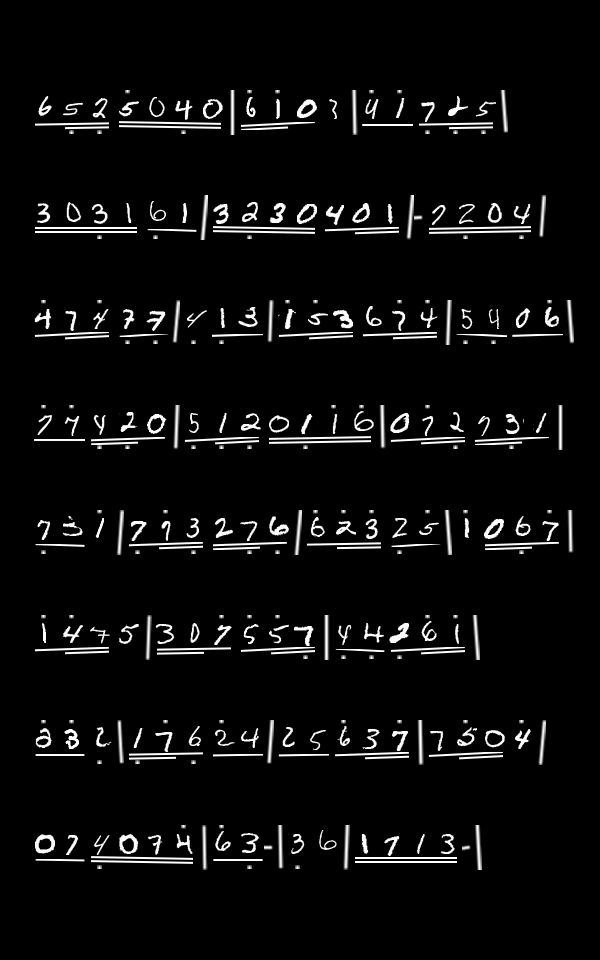 6 5 2 5 0 4 0 | 6 1 0 3 | 4 1 7 2 5 |
3 0 3 1 6 1 | 3 2 3 0 4 0 1 | - 7 2 0 4 |
4 7 4 7 7 | 4 1 3 | 1 5 3 6 7 4 | 5 4 0 6 |
7 7 4 2 0 | 5 1 2 0 1 1 6 | 0 7 2 7 3 1 |
7 3 1 | 7 9 3 2 7 6 | 6 2 3 2 5 | 1 0 6 7 |
1 4 7 5 | 3 0 7 5 5 7 | 4 4 2 6 1 |
2 3 2 | 1 7 6 2 4 | 2 5 6 3 7 | 7 5 0 4 |
0 7 4 0 7 4 | 6 3 - | 3 6 | 1 7 1 3 - |